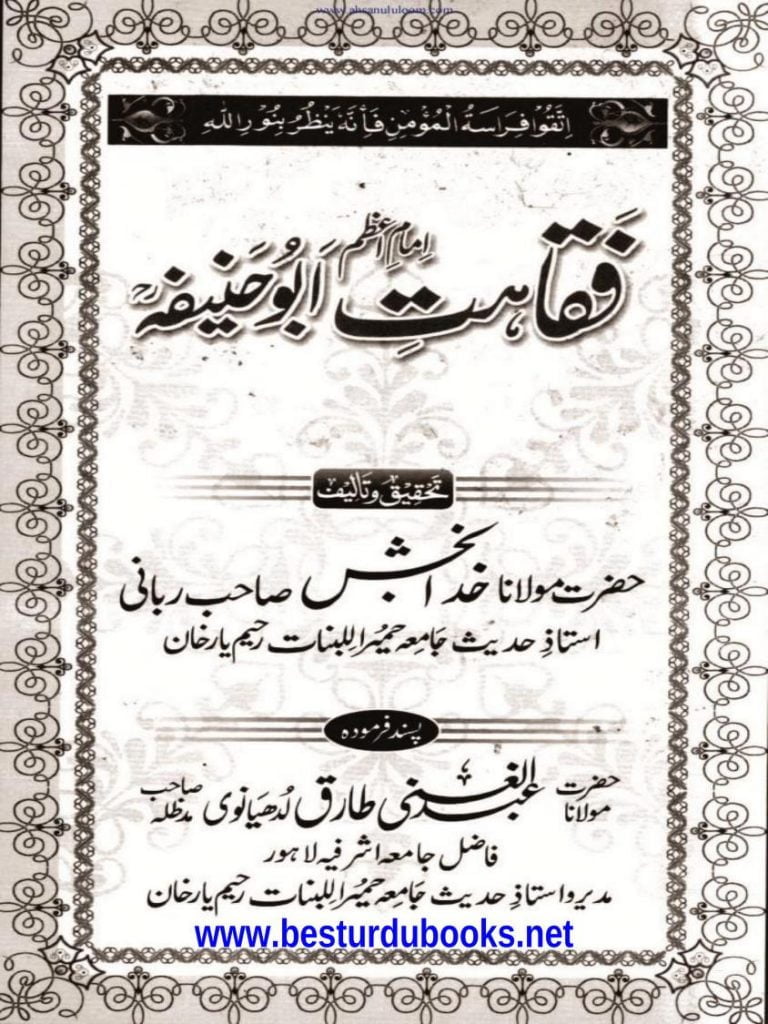 www.ahsanululoom.com
اِتَّقُوْا فِرَاسَةَ الْمُؤْمِنِ فَاِنَّهٗ يَنْظُرُ بِنُوْرِ اللّٰهِ
فَقاہتِ امامِ اعظم اَبُو حَنیفہؒ
تحقیق و تالیف
حضرت مولانا خدا بخش صاحب ربانی
استاذِ حدیث جامعہ حمیرا للبنات رحیم یار خان
پسند فرمودہ
حضرت مولانا عبد الغنی طارق لدھیانوی صاحب مدظلہ
فاضل جامعہ اشرفیہ لاہور
مدیر و استاذِ حدیث جامعہ حمیرا للبنات رحیم یار خان
www.besturdubooks.net